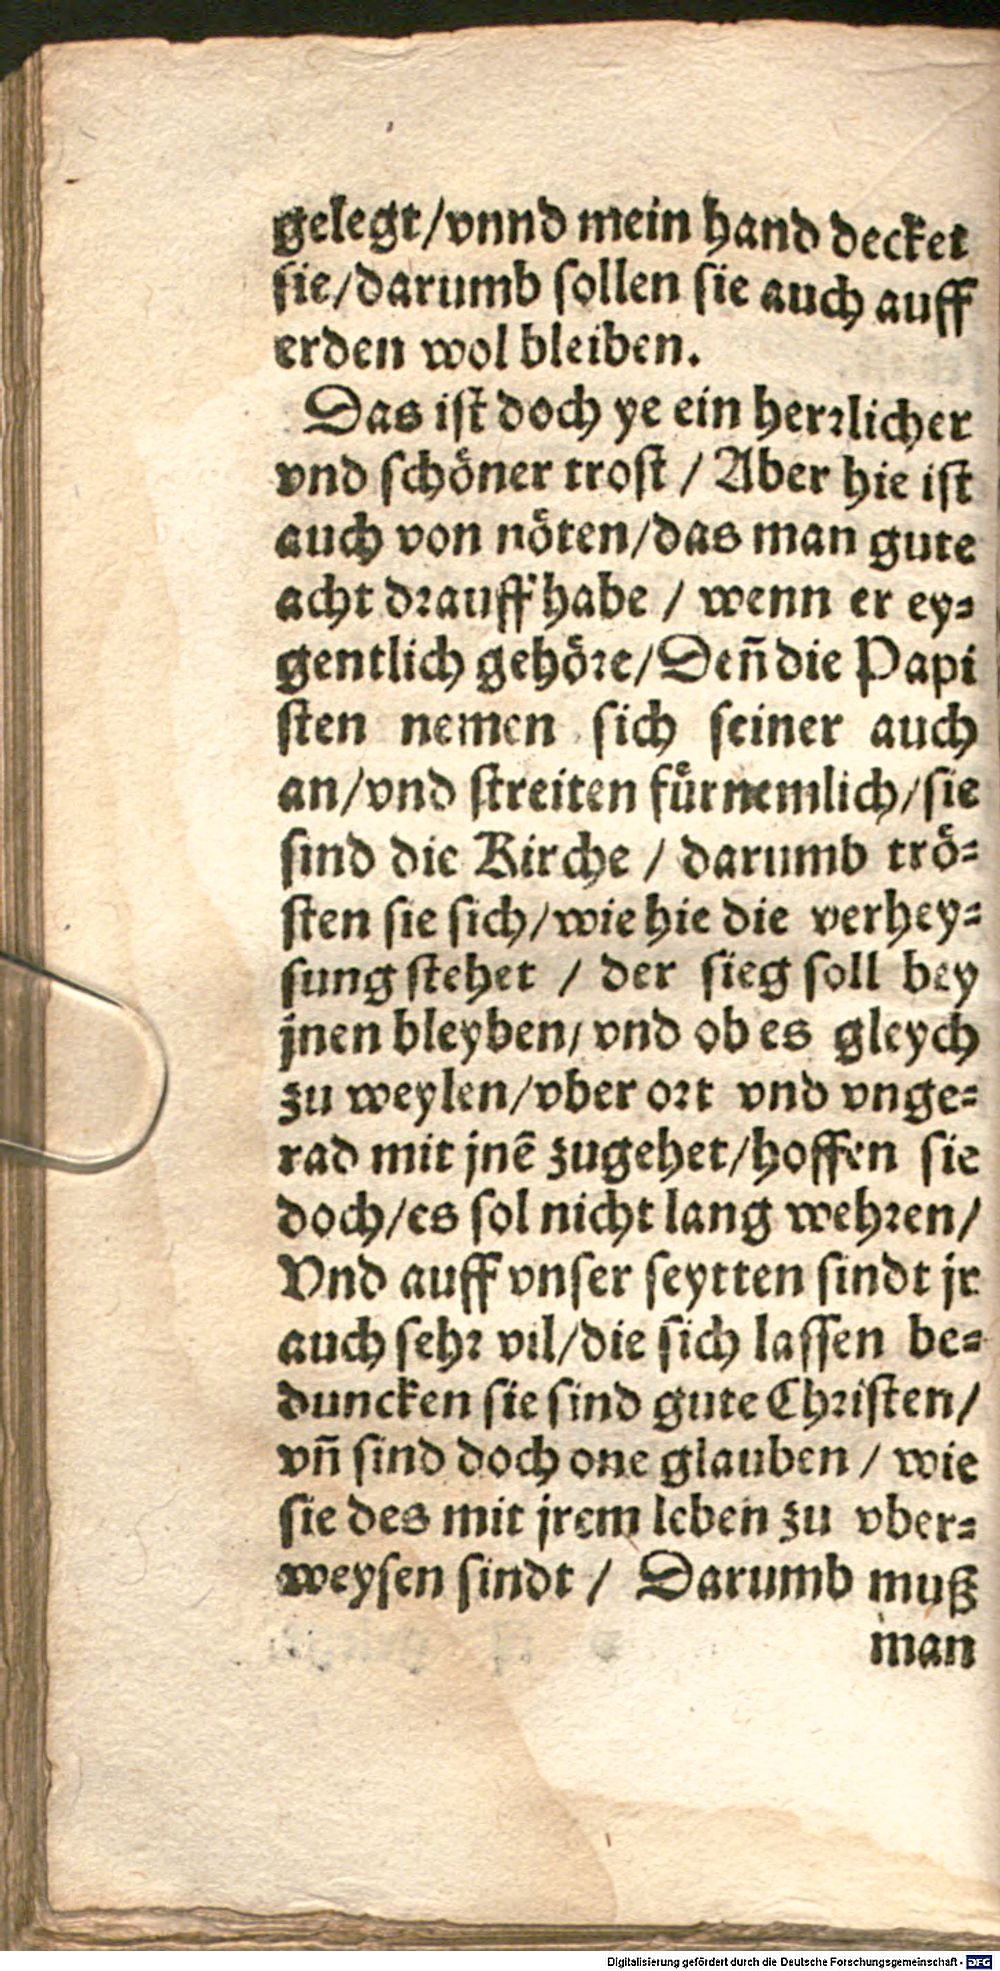 gelegt/vnnd mein hand decket
sie/darumb sollen sie auch auff
erden wol bleiben.
Das ist doch ye ein herrlicher
vnd schöner trost / Aber hie ist
auch von nöten/das man gute
acht drauff habe / wenn er ey-
gentlich gehöre/Deñ die Papi
sten nemen sich seiner auch
an/vnd streiten fürnemlich/sie
sind die Kirche / darumb trö-
sten sie sich/wie hie die verhey-
sung stehet / der sieg soll bey
jnen bleyben/vnd ob es gleych
zu weylen/vber ort vnd vnge-
rad mit jnē zugehet/hoffen sie
doch/es sol nicht lang wehren/
Vnd auff vnser seytten sindt jr
auch sehr vil/die sich lassen be-
duncken sie sind gute Christen/
vñ sind doch one glauben / wie
sie des mit jrem leben zu vber-
weysen sindt / Darumb muß
man
Digitalisierung gefördert durch die Deutsche Forschungsgemeinschaft - DFG